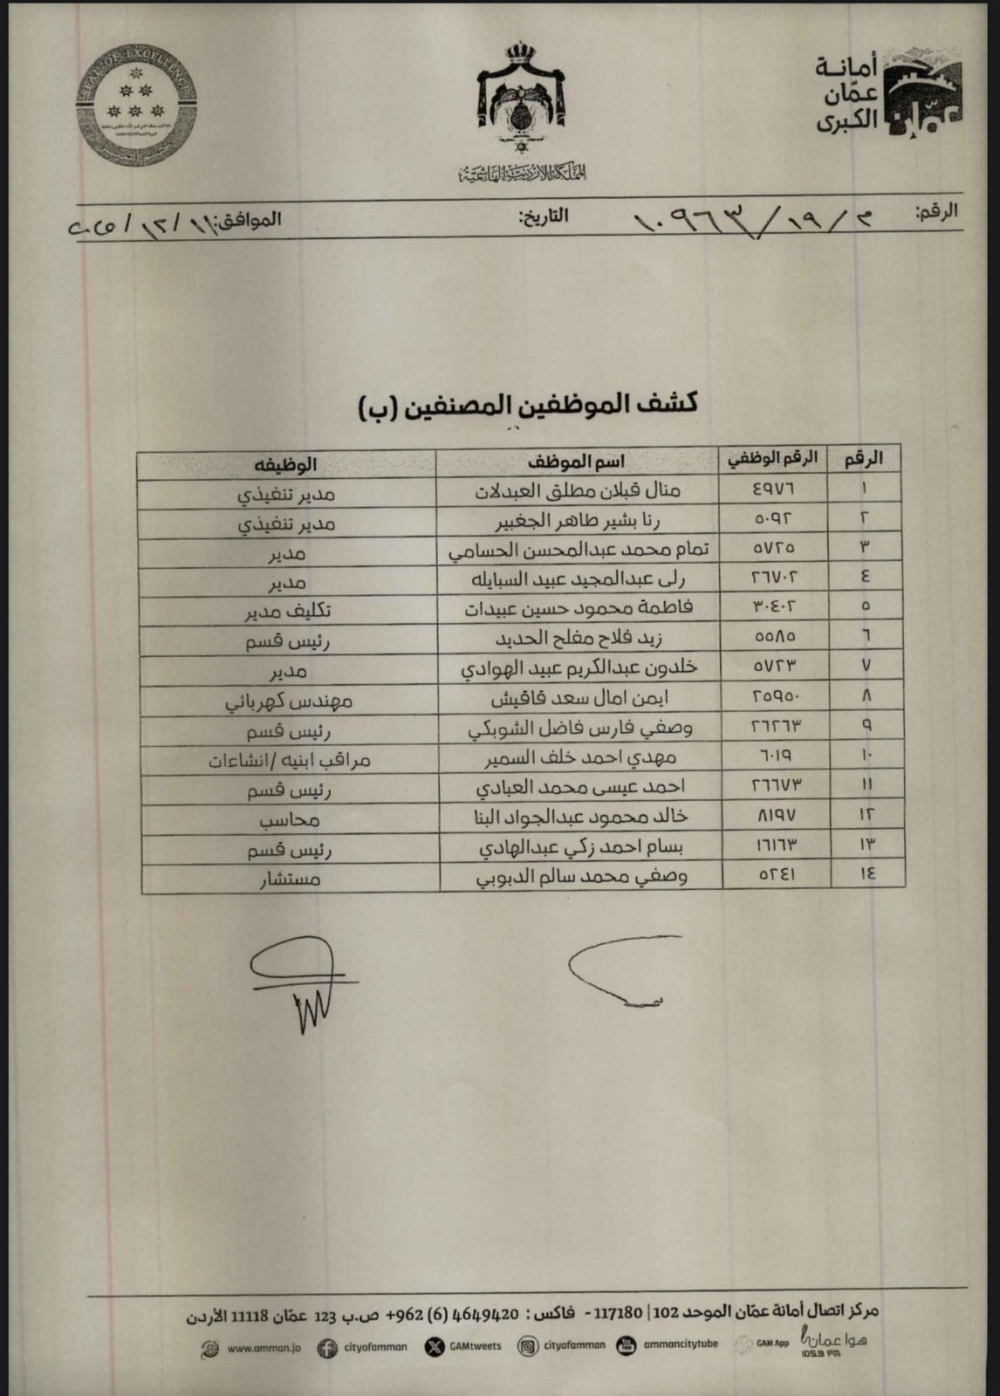 SEAL OF EXCELLENCE
المملكة الأردنية الهاشمية
أمانة
عمّان
الكبرى
الرقم: م / ١٩ / ١٠٩٦٣ التاريخ: الموافق: ١١ / ١٢ / ٢٠٢٥
كشف الموظفين المصنفين (ب)
الرقم الرقم الوظفي اسم الموظف الوظيفه
١ ٤٩٧٦ منال قبلان مطلق العبدلات مدير تنفيذي
٢ ٥٠٩٢ رنا بشير طاهر الجغبير مدير تنفيذي
٣ ٥٧٢٥ تمام محمد عبدالمحسن الحسامي مدير
٤ ٢٦٧٠٢ رلى عبدالمجيد عبيد السبايله مدير
٥ ٣٠٤٠٢ فاطمة محمود حسين عبيدات تكليف مدير
٦ ٥٥٨٥ زيد فلاح مفلح الحديد رئيس قسم
٧ ٥٧٢٣ خلدون عبدالكريم عبيد الهوادي مدير
٨ ٢٥٩٥٠ ايمن امال سعد قاقيش مهندس كهربائي
٩ ٢٦٢٦٣ وصفي فارس فاضل الشوبكي رئيس قسم
١٠ ٦٠١٩ مهدي احمد خلف السمير مراقب ابنيه /انشاءات
١١ ٢٦٦٧٣ احمد عيسى محمد العبادي رئيس قسم
١٢ ٨١٩٧ خالد محمود عبدالجواد البنا محاسب
١٣ ١٦١٦٣ بسام احمد زكي عبدالهادي رئيس قسم
١٤ ٥٢٤١ وصفي محمد سالم الدبوبي مستشار
مركز اتصال أمانة عمّان الموحد 102 | 117180 - فاكس : 4649420 (6) 962+ ص.ب 123 عمّان 11118 الأردن
www.amman.jo cityofamman GAMtweets cityofamman ammancitytube GAM App هوا عمان
105.9 FM